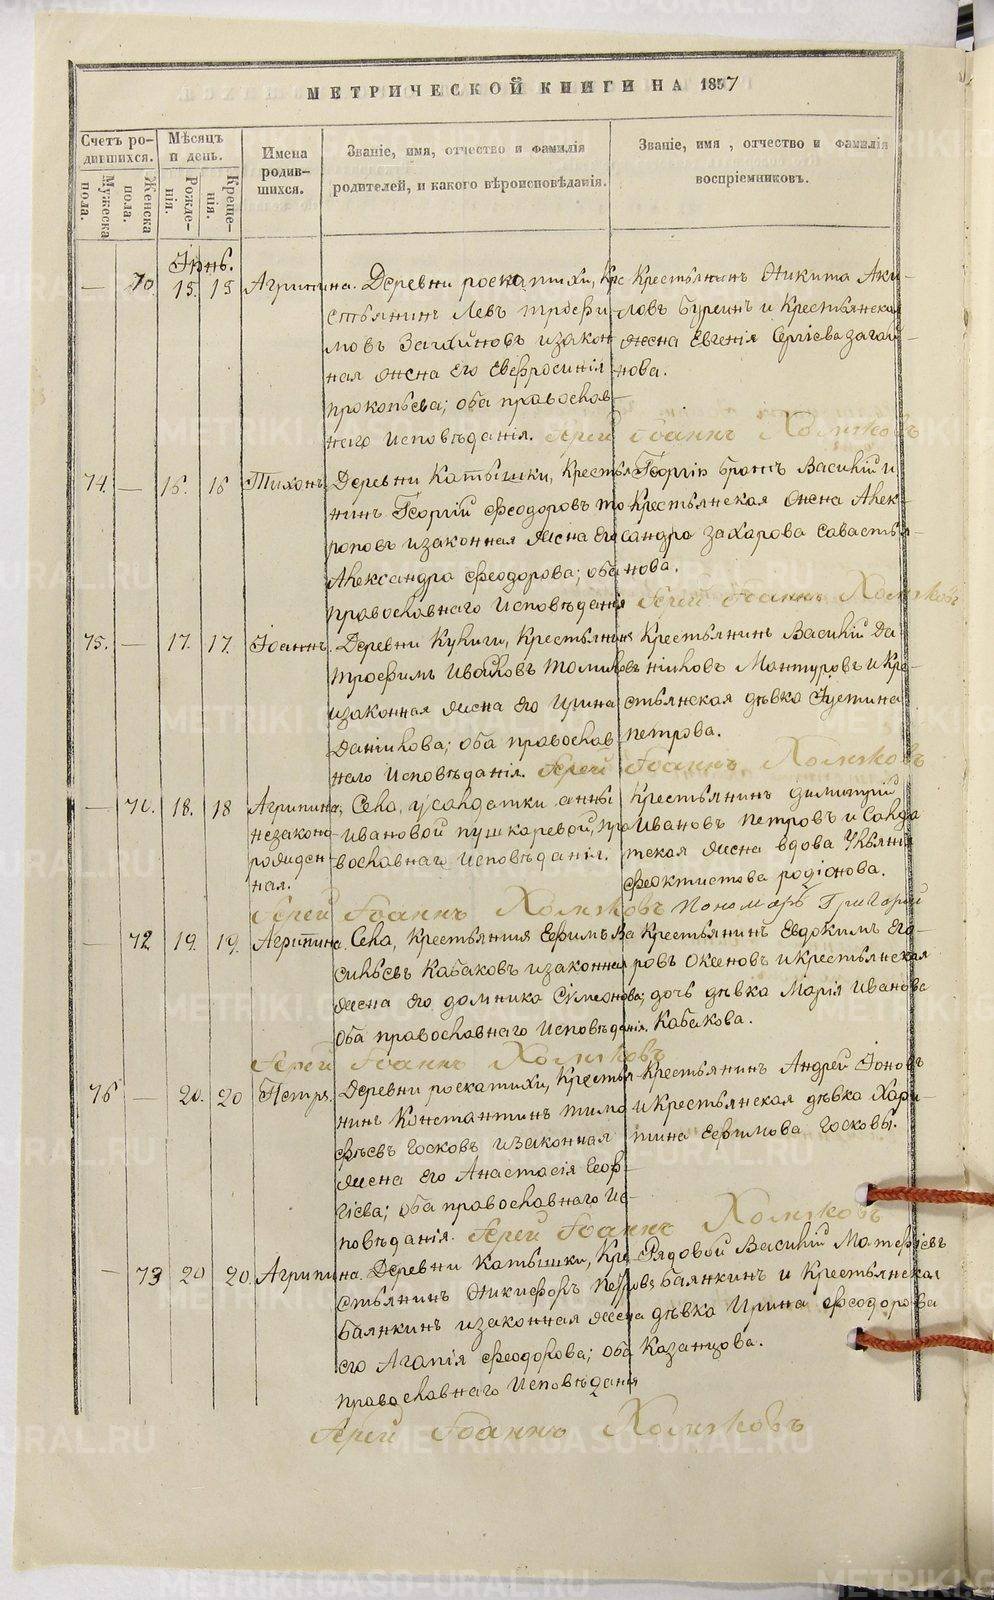 МЕТРИЧЕСКОЙ КНИГИ НА 1857
Счетъ родившихся.
Мужеска пола.
Женска пола.
Мѣсяцъ и день.
Рожденія.
Крещенія.
Имена родившихся.
Званіе, имя, отчество и фамилія родителей, и какого вѣроисповѣданія.
Званіе, имя, отчество и фамилія воспріемниковъ.
Іюнь.
— 70. 15. 15 Агрипина.
Деревни роскатихи, Кре
стьянинъ Левъ трофи
мовъ Загайновъ изакон
ная жена его Евфросинія
прокопьева; оба православ–
наго исповѣданія.
Крестьянинъ Никита Аки–
ловъ Буринъ и Крестьянская
жена Евгенія Сергіева загай–
нова.
Іерей Іоаннъ Холмяковъ
74. — 16. 16 Тихонъ.
Деревни Катышки, Крестья
нинъ Георгій Феодоровъ то
роповъ изаконная жена его
Александра Феодорова; оба
православнаго исповѣданія
Георгій братъ Василій и
Крестьянская жена Алек–
сандра захарова савастья–
нова.
Іерей Іоаннъ Холмяковъ
75. — 17. 17. Іоаннъ.
Деревни Крестьянинъ
Трофимъ
изаконная жена его Ирина
Данилова; оба православ
наго исповѣданія.
Крестьянинъ Василій Да
ниловъ Мантуровъ и Кре–
стьянская дѣвка Іустина
петрова.
Іерей Іоаннъ Холмяковъ
— 71. 18. 18 Агрипина,
незаконо–
рожден–
ная.
Села, усолдатки анны
Ивановой пушкаревой, пра
вославнаго исповѣданія.
Крестьянинъ димитрій
Ивановъ петровъ и Солда
тская жена вдова Ульянія
Феоктистова родіонова.
Іерей Іоаннъ Холмяковъ Пономарь Григорій
— 72 19. 19. Агрипина.
Села, Крестьянина Ефимъ Ва
сильевъ Кабаковъ изаконная
жена его домника Сѵмеонова;
Оба православнаго исповѣданія.
Крестьянинъ Евдокимъ Его–
ровъ Оксеновъ и Крестьянская
дочь дѣвка Марія Иванова
Кабакова.
Іерей Іоаннъ Холмяковъ
76 — 20. 20 Петръ.
Деревни роскатихи, Крестья
нинъ Константинъ тимо
фѣевъ Госковъ изаконная
жена его Анастасія Геор–
гіева; оба православнаго ис–
повѣданія.
Крестьянинъ Андрей Іоновъ
и Крестьянская дѣвка Хари–
тина Ефимова Госковы.
Іерей Іоаннъ Холмяковъ
— 73 20 20. Агрипина.
Деревни Катышки, Кре
стьянинъ Никифоръ Петровъ
Балнкинъ изаконная жена
его Агапія Феодорова; оба
православнаго исповѣданія
Рядовой Василій Матфіевъ
Балнкинъ и Крестьянская
дѣвка Ирина Феодорова
Казанцова.
Іерей Іоаннъ Холмяковъ
METRIKI.GASO-URAL.RU